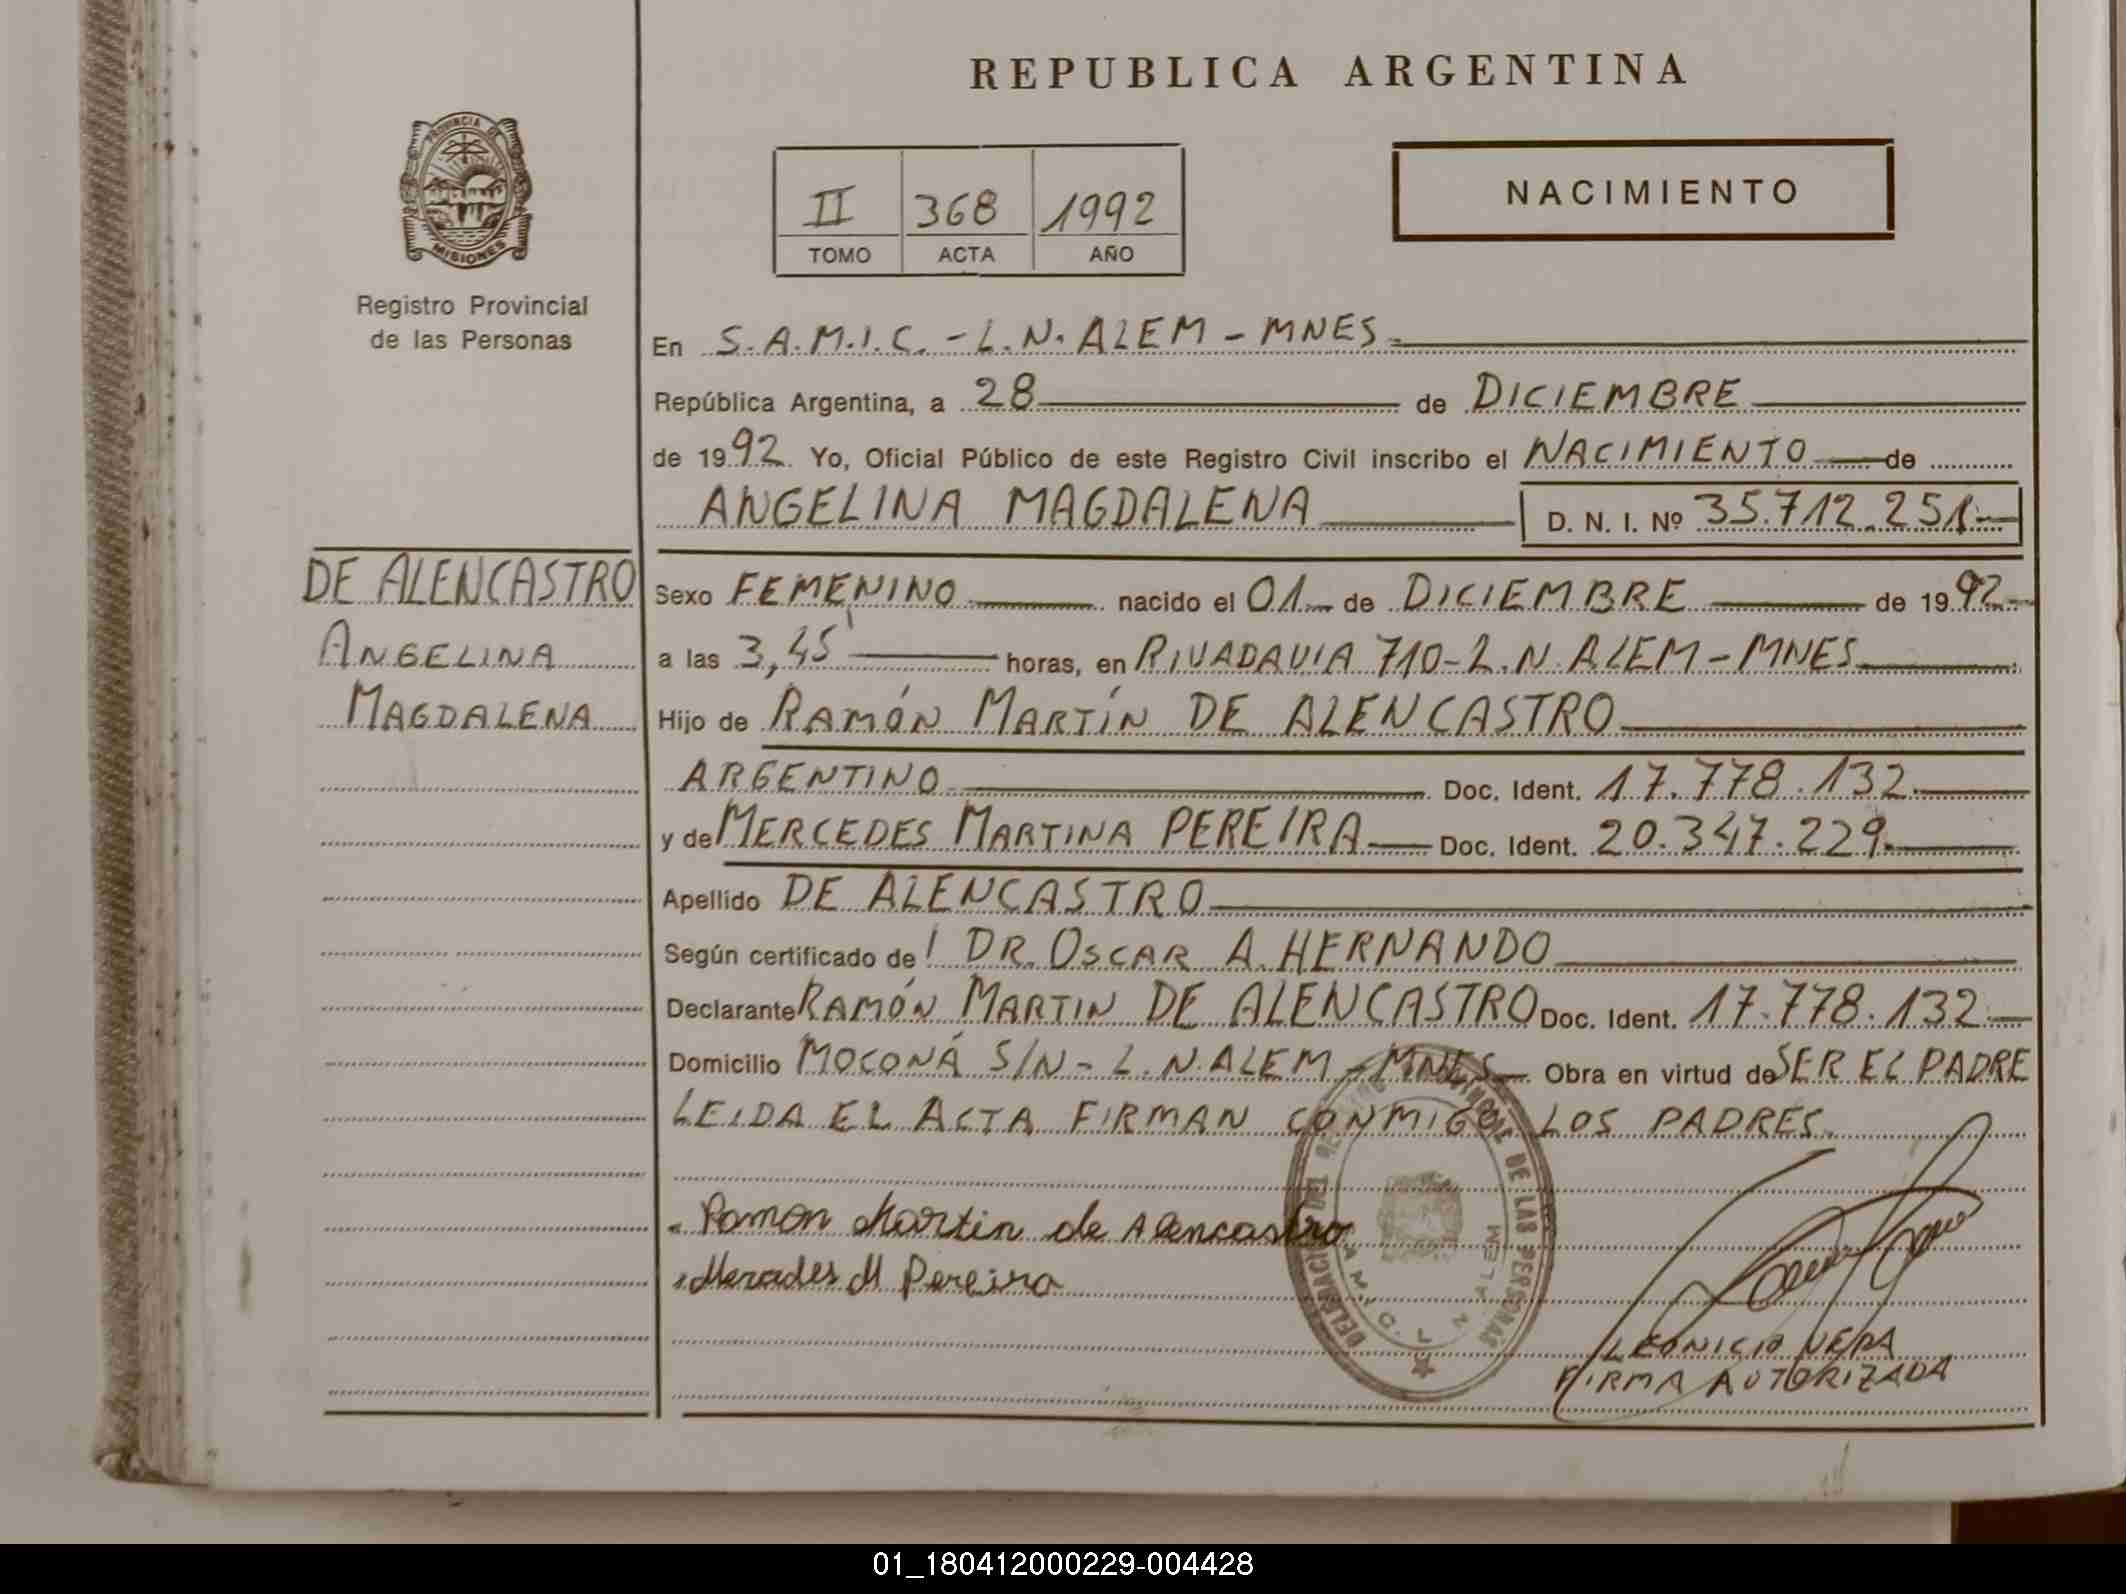 REPUBLICA ARGENTINA
PROVINCIA DE
MISIONES
Registro Provincial
de las Personas
II 368 1992
TOMO ACTA AÑO
NACIMIENTO
En S.A.M.I.C. - L.N. ALEM - MNES
República Argentina, a 28 de DICIEMBRE
de 1992 Yo, Oficial Público de este Registro Civil inscribo el NACIMIENTO de
ANGELINA MAGDALENA D. N. I. Nº 35.712.251
DE ALENCASTRO
ANGELINA
MAGDALENA
Sexo FEMENINO nacido el 01 de DICIEMBRE de 1992
a las 3,45' horas, en RIVADAVIA 710 - L.N. ALEM - MNES
Hijo de RAMÓN MARTÍN DE ALENCASTRO
ARGENTINO Doc. Ident. 17.778.132
y de MERCEDES MARTINA PEREIRA Doc. Ident. 20.347.229
Apellido DE ALENCASTRO
Según certificado de! DR. OSCAR A. HERNANDO
Declarante RAMÓN MARTIN DE ALENCASTRO Doc. Ident. 17.778.132
Domicilio MOCONÁ S/N - L.N. ALEM - MNES Obra en virtud de SER EL PADRE
LEIDA EL ACTA FIRMAN CONMIGO LOS PADRES.
Ramon Martin de Alencastro
Mercedes M Pereira
DE LAS PERSONAS
L N ALEM
LEONICIO NERA
FIRMA AUTORIZADA
01_180412000229-004428